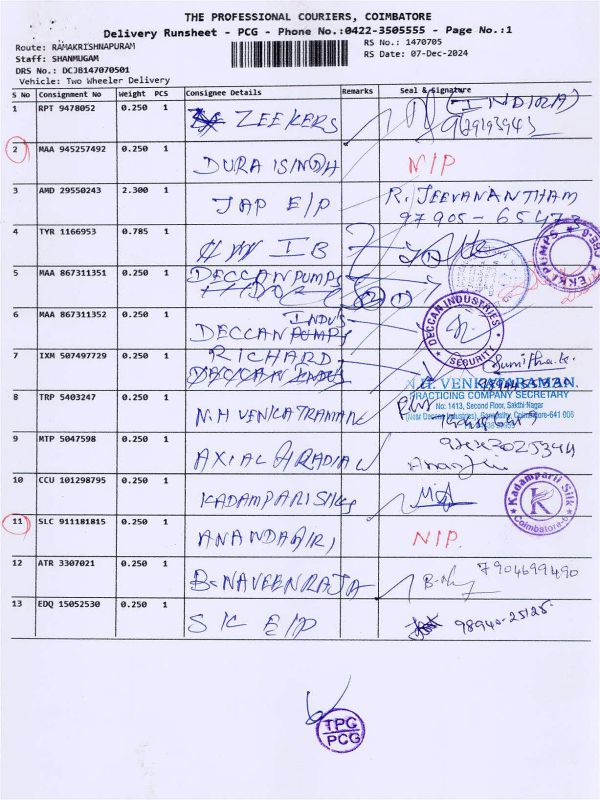 THE PROFESSIONAL COURIERS, COIMBATORE
Delivery Runsheet - PCG - Phone No.:0422-3505555 - Page No.:1
Route: RAMAKRISHNAPURAM
RS No.: 1470705
Staff: SHANMUGAM
RS Date: 07-Dec-2024
DRS No.: DCJB147070501
Vehicle: Two Wheeler Delivery
S No Consignment No Weight PCS Consignee Details Remarks Seal & Signature
1 RPT 9478052 0.250 1 ZEEKERS (INDIRA)
2 MAA 945257492 0.250 1 DURAISINGH N/P
3 AMD 29550243 2.300 1 JAP E/P R. JEEVANANTHAM
97905-65473
4 TYR 1166953 0.785 1 IB
EKKI PUMPS
5 MAA 867311351 0.250 1 DECCAN PUMPS
6 MAA 867311352 0.250 1 DECCAN PUMPS INDUS
DECCAN INDUSTRIES
SECURITY
7 IXM 507497729 0.250 1 RICHARD
DECCAN INDUS
N.H. VENKATARAMAN.
PRACTICING COMPANY SECRETARY
No: 1413, Second Floor, Sakthi Nagar
(Near Deccan Industries), Ganapathy, Coimbatore-641 006
8 TRP 5403247 0.250 1 N.H VENKATRAMAN
9 MTP 5047598 0.250 1 AXIAL & RADIAL
10 CCU 101298795 0.250 1 KADAMPARI SILKS
Kadamparii Silk
K
Coimbatore-6
11 SLC 911181815 0.250 1 N/P.
12 ATR 3307021 0.250 1 B. NAVEENRAJA 7904699490
13 EDQ 15052530 0.250 1 SK E/P 98940-25125
TPC
PCG